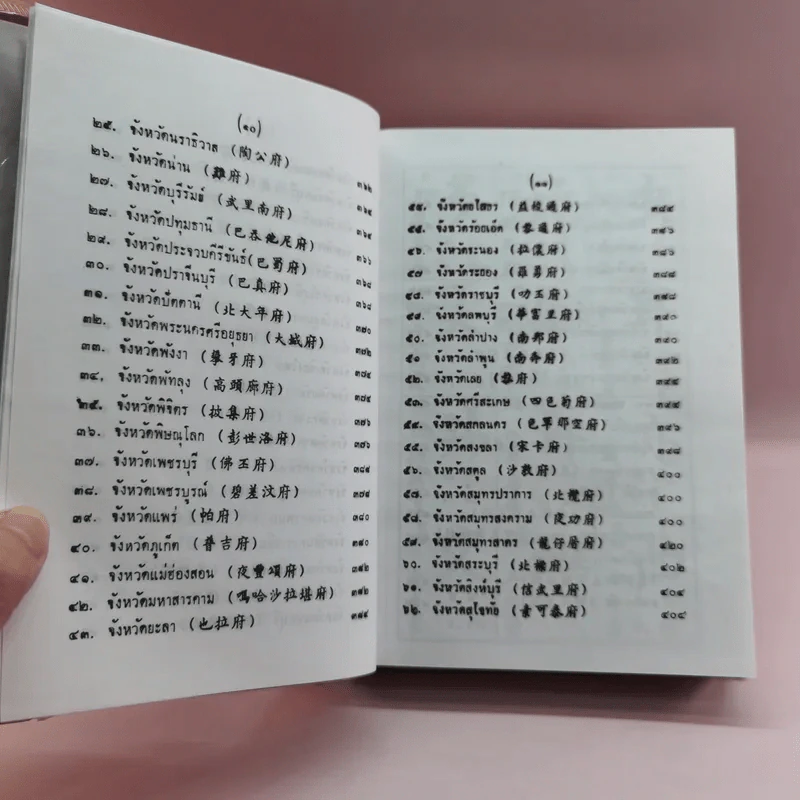 (๑๐)
๒๕. จังหวัดนราธิวาส (陶公府)
๒๖. จังหวัดน่าน (難府) ๓๒๒
๒๗. จังหวัดบุรีรัมย์ (武里南府) ๓๖๔
๒๘. จังหวัดปทุมธานี (巴吞他尼府) ๓๖๔
๒๙. จังหวัดประจวบคีรีขันธ์(巴蜀府) ๓๖๖
๓๐. จังหวัดปราจีนบุรี (巴真府) ๓๖๘
๓๑. จังหวัดปัตตานี (北大年府) ๓๖๘
๓๒. จังหวัดพระนครศรีอยุธยา (大城府) ๓๗๐
๓๓. จังหวัดพังงา (攀牙府) ๓๗๒
๓๔. จังหวัดพัทลุง (高頭廊府) ๓๗๔
๒๕. จังหวัดพิจิตร (披集府) ๓๗๖
๓๖. จังหวัดพิษณุโลก (彭世洛府) ๓๗๖
๓๗. จังหวัดเพชรบุรี (佛丕府)
๓๘. จังหวัดเพชรบูรณ์ (碧差汶府) ๓๗๘
๓๙. จังหวัดแพร่ (帕府) ๓๘๐
๔๐. จังหวัดภูเก็ต (普吉府)
๔๑. จังหวัดแม่ฮ่องสอน (夜豐頌府)
๔๒. จังหวัดมหาสารคาม (嗎哈沙拉堪府)
๔๓. จังหวัดยะลา (也拉府)
(๑๑)
จังหวัดยโสธร (益梭通府)
จังหวัดร้อยเอ็ด (黎逸府) ๓๘๖
๔๖. จังหวัดระนอง (拉濃府) ๓๘๘
๔๗ จังหวัดระยอง (羅勇府) ๓๘๘
๔๘. จังหวัดราชบุรี (叻丕府)
จังหวัดลพบุรี (華富里府)
๕๐. จังหวัดลำปาง (南邦府)
๕๑ จังหวัดลำพูน (南奔府)
๕๒. จังหวัดเลย (黎府)
๕๓. จังหวัดศรีสะเกษ (四色菊府)
จังหวัดสกลนคร (色軍那空府)
๕๕. จังหวัดสงขลา (宋卡府)
๕๖. จังหวัดสตูล (沙敦府) ๔๐๐
๕๗. จังหวัดสมุทรปราการ (北欖府) ๔๐๐
๕๘. จังหวัดสมุทรสงคราม (夜功府) ๔๐๐
๕๙. จังหวัดสมุทรสาคร (龍仔厝府) ๔๒๐
๖๐. จังหวัดสระบุรี (北標府) ๔๐๒
๖๑. จังหวัดสิงห์บุรี (信武里府) ๔๐๔
๖๒. จังหวัดสุโขทัย (素可泰府) ๔๐๘